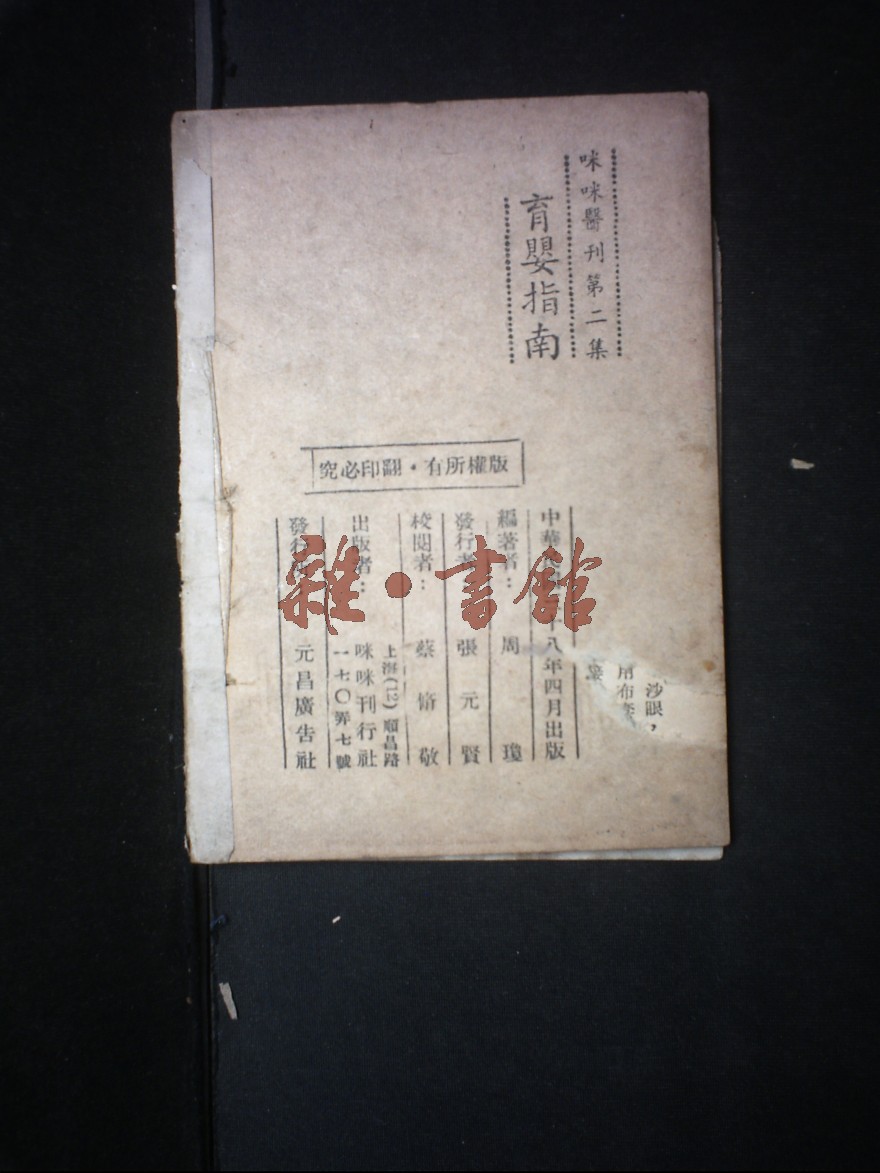 咪咪醫刊第二集
育嬰指南
版權所有·翻印必究
中華 十八年四月出版
編著者：周瓊
發行者 張元賢
校閱者：蔡脩敬
出版者：咪咪刊行社
上海(12)順昌路
一七〇弄七號
發行 元昌廣告社
沙眼，
用布
雜·書館